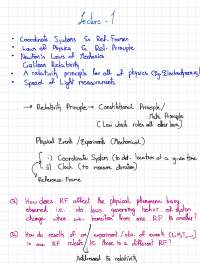 Lecture - 1
• Coordinate Systems & Ref. Frames
• Laws of Physics & Rel. Principle
• Newton's Laws of Mechanics
• Galilean Relativity
• A relativity principle for all of physics (Eg. Electrodynamics)
• Speed of Light measurements
→ Relativity Principle → Constitutional Principle /
Meta Principle
(Law which rules all other laws)
Physical Events / Experiments (Mechanical)
i) Coordinate System (to det. location at a given time
ii) Clock (to measure duration)
Reference Frame
Q) How does RF affect the physical phenomena being
observed i.e. do laws governing behavior of system
change when we transform from one RF to another?
Q) How do results of an experiment / obs. of events
in one RF relate to those in a different RF?
Additional to relativity